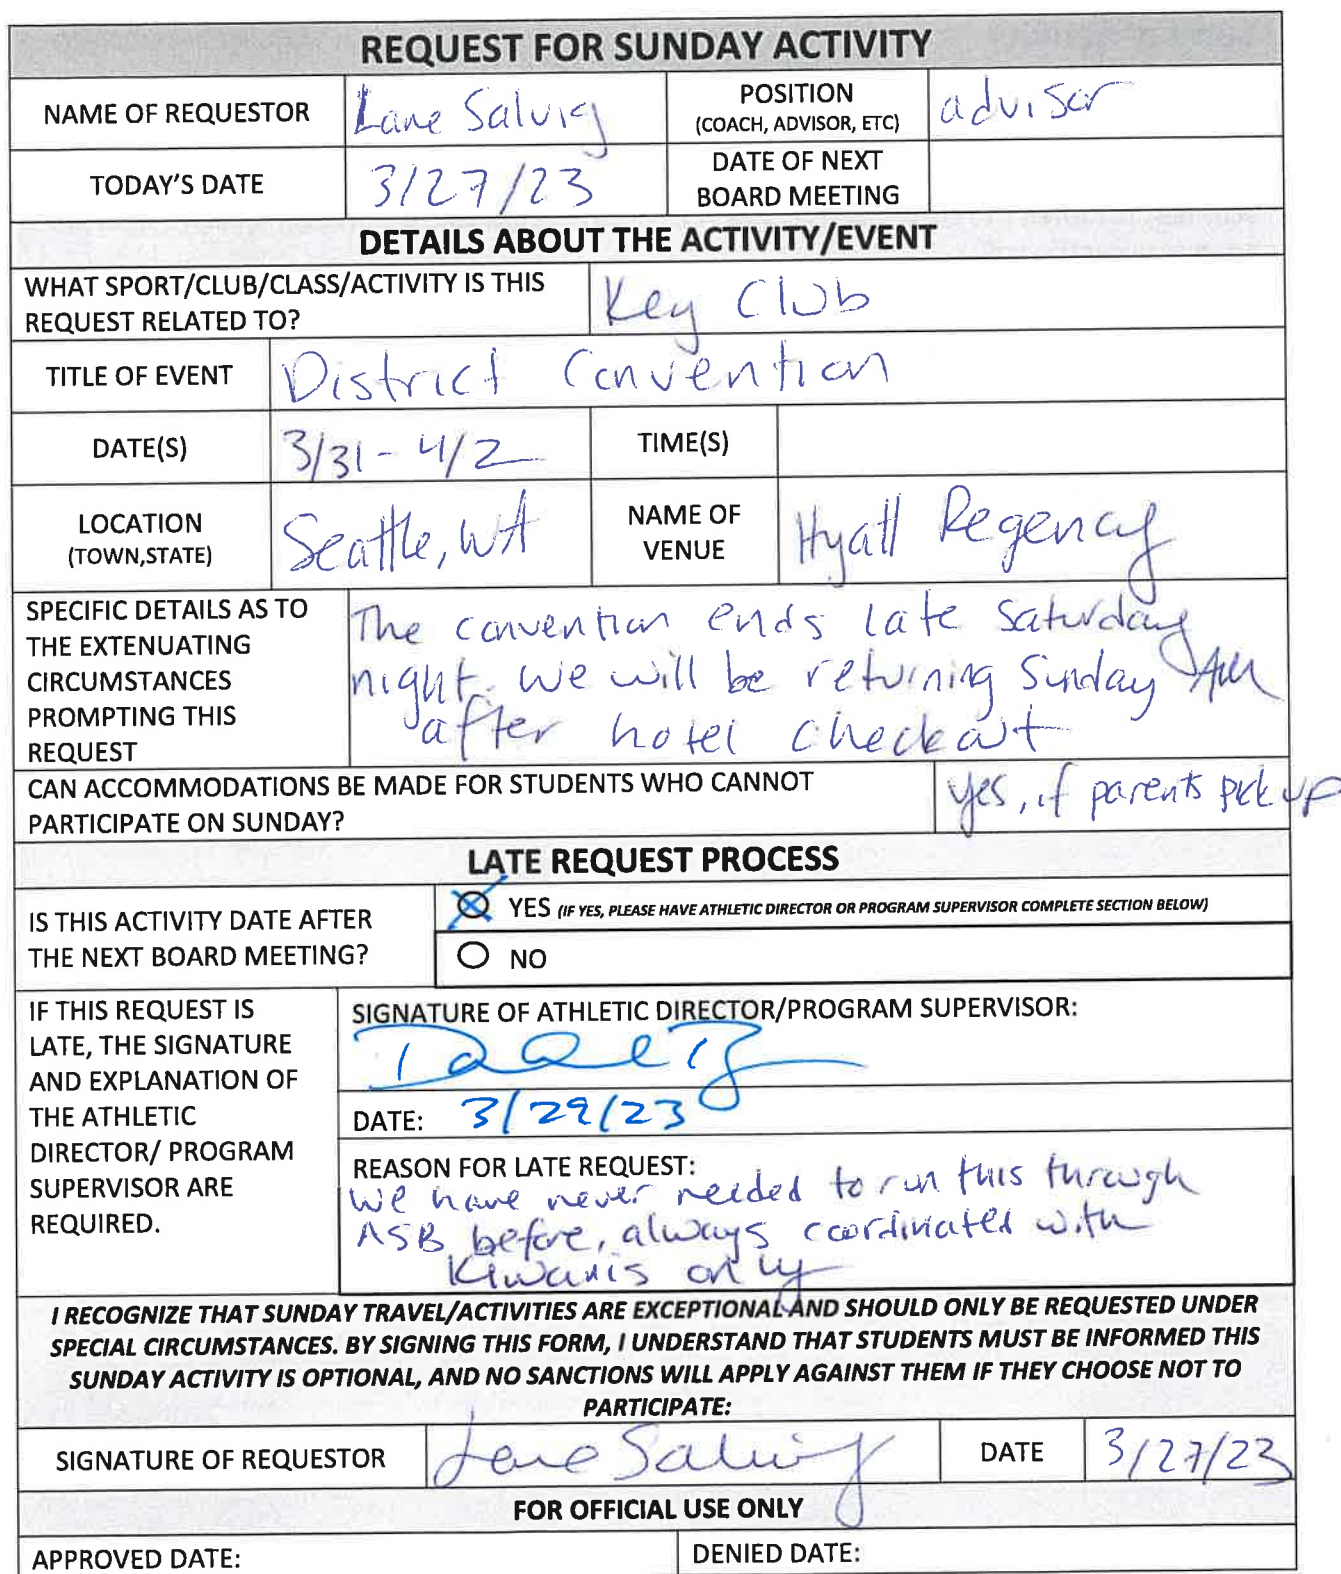 REQUEST FOR SUNDAY ACTIVITY
NAME OF REQUESTOR Lane Salvig POSITION (COACH, ADVISOR, ETC) advisor
TODAY'S DATE 3/27/23 DATE OF NEXT BOARD MEETING
DETAILS ABOUT THE ACTIVITY/EVENT
WHAT SPORT/CLUB/CLASS/ACTIVITY IS THIS
REQUEST RELATED TO? Key Club
TITLE OF EVENT District Convention
DATE(S) 3/31 - 4/2 TIME(S)
LOCATION (TOWN,STATE) Seattle, WA NAME OF VENUE Hyatt Regency
SPECIFIC DETAILS AS TO
THE EXTENUATING
CIRCUMSTANCES
PROMPTING THIS
REQUEST
The convention ends late Saturday
night. We will be returning Sunday AM
after hotel checkout
CAN ACCOMMODATIONS BE MADE FOR STUDENTS WHO CANNOT
PARTICIPATE ON SUNDAY? yes, if parents pick up
LATE REQUEST PROCESS
IS THIS ACTIVITY DATE AFTER
THE NEXT BOARD MEETING?
YES (IF YES, PLEASE HAVE ATHLETIC DIRECTOR OR PROGRAM SUPERVISOR COMPLETE SECTION BELOW)
NO
IF THIS REQUEST IS
LATE, THE SIGNATURE
AND EXPLANATION OF
THE ATHLETIC
DIRECTOR/ PROGRAM
SUPERVISOR ARE
REQUIRED.
SIGNATURE OF ATHLETIC DIRECTOR/PROGRAM SUPERVISOR:
DATE: 3/29/23
REASON FOR LATE REQUEST:
We have never needed to run this through
ASB before, always coordinated with
Kiwanis only
I RECOGNIZE THAT SUNDAY TRAVEL/ACTIVITIES ARE EXCEPTIONAL AND SHOULD ONLY BE REQUESTED UNDER
SPECIAL CIRCUMSTANCES. BY SIGNING THIS FORM, I UNDERSTAND THAT STUDENTS MUST BE INFORMED THIS
SUNDAY ACTIVITY IS OPTIONAL, AND NO SANCTIONS WILL APPLY AGAINST THEM IF THEY CHOOSE NOT TO
PARTICIPATE:
SIGNATURE OF REQUESTOR Lane Salvig DATE 3/27/23
FOR OFFICIAL USE ONLY
APPROVED DATE: DENIED DATE: